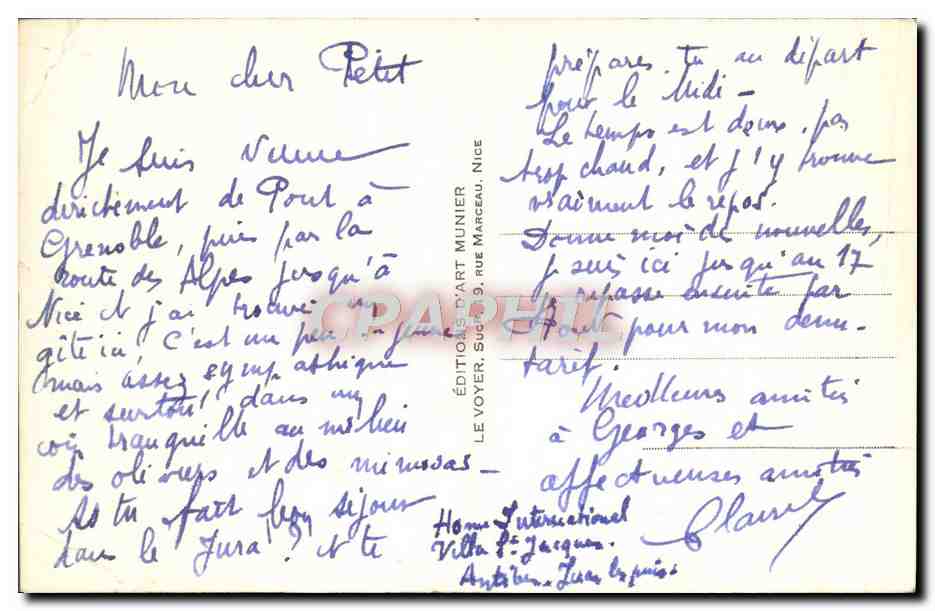 Mon cher Petit
Je suis venue
directement de Pont à
Grenoble, puis par la
route des Alpes jusqu'à
Nice et j'ai trouvé un
gîte ici, c'est un peu jeune
mais assez sympathique
et surtout dans un
coin tranquille au milieu
des oliviers et des mimosas –
As tu fait bon séjour
dans le Jura ? et te
prépares tu au départ
pour le Midi –
Le temps est doux, pas
trop chaud, et j'y trouve
vraiment le repos.
Donne moi de nouvelles,
je suis ici jusqu'au 17
je repasse ensuite par
pour mon demi-
tarif.
Meilleures amitiés
à Georges et
affectueuses amitiés
Home International
Villa St Jacques.
Antibes – Juan les pins.
ÉDITIONS D'ART MUNIER
LE VOYER, Sucr, 9, RUE MARCEAU, NICE
CPAPHIL